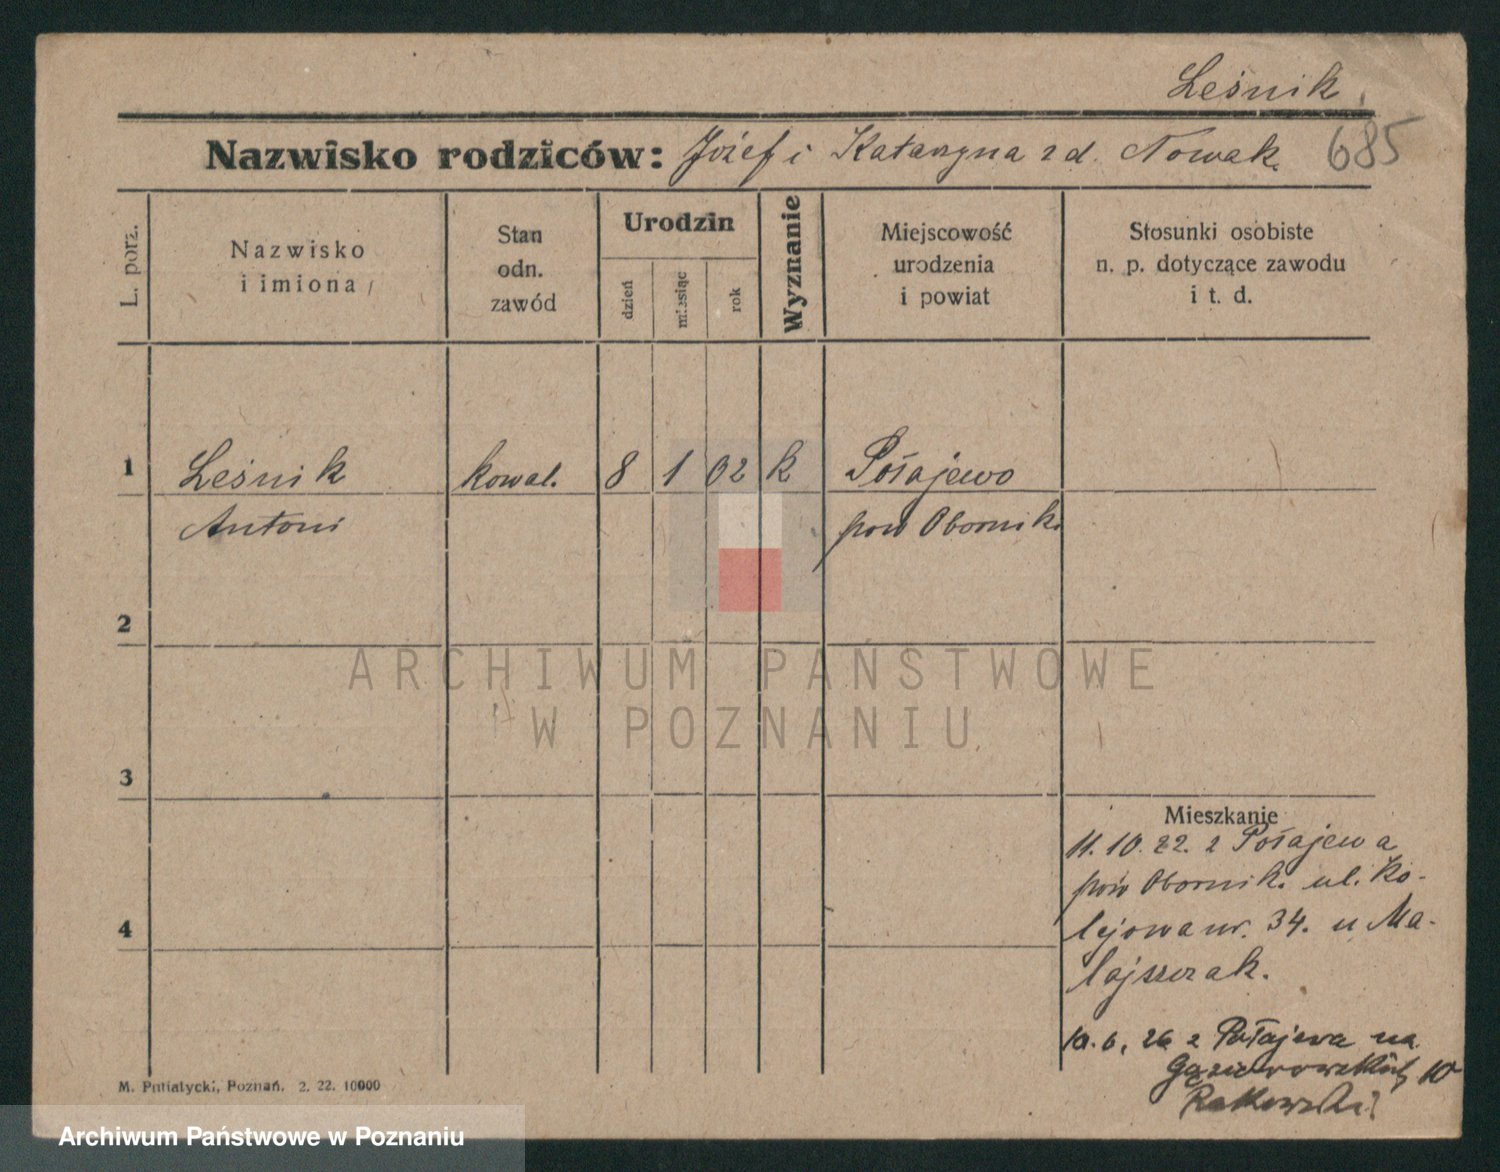 Leśnik
Nazwisko rodziców: Józef i Katarzyna z d. Nowak.
685
L. porz.
Nazwisko
i imiona
Stan
odn.
zawód
Urodzin
dzień
miesiąc
rok
Wyznanie
Miejscowość
urodzenia
i powiat
Stosunki osobiste
n. p. dotyczące zawodu
i t. d.
1
Leśnik
kowal.
8
1
02
k
Połajewo
Antoni
pow Obornik.
2
3
4
Mieszkanie
11.10.22. z Połajewa
pow Obornik. ul. Ko-
lejowa nr. 34. u Ma-
lajszczak.
10.6.26 z Połajewa na
10
Ratkowski
M. Putiatycki, Poznań. 2. 22. 10000
ARCHIWUM PAŃSTWOWE
W POZNANIU
Archiwum Państwowe w Poznaniu